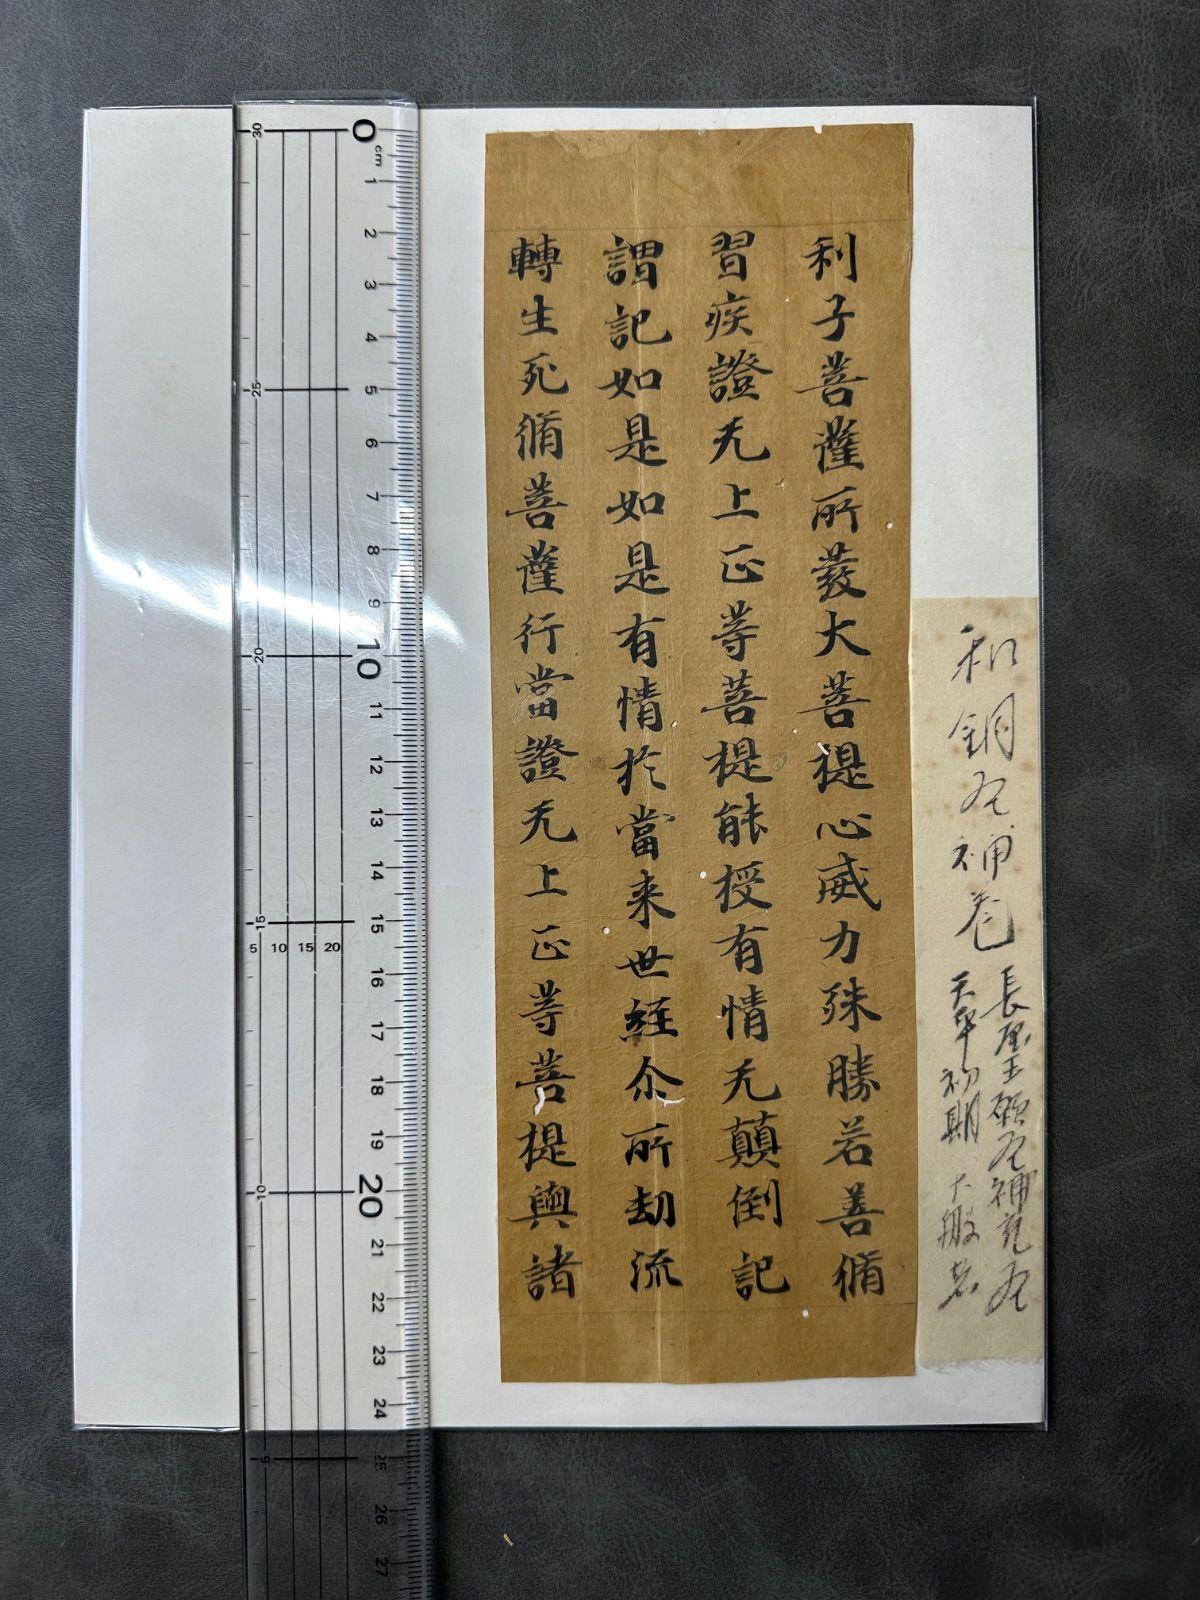 和銅経補巻
長屋王願経補充経
天平初期 大般若
利子菩薩所發大菩提心威力殊勝若善脩
習疾證无上正等菩提能授有情无顛倒記
謂記如是如是有情於當来世經尒所劫流
轉生死脩菩薩行當證无上正等菩提與諸
0 cm 1 2 3 4 5 6 7 8 9 10 11 12 13 14 15 16 17 18 19 20 21 22 23 24 25 26 27
30 25 20 15 10 5
5 10 15 20